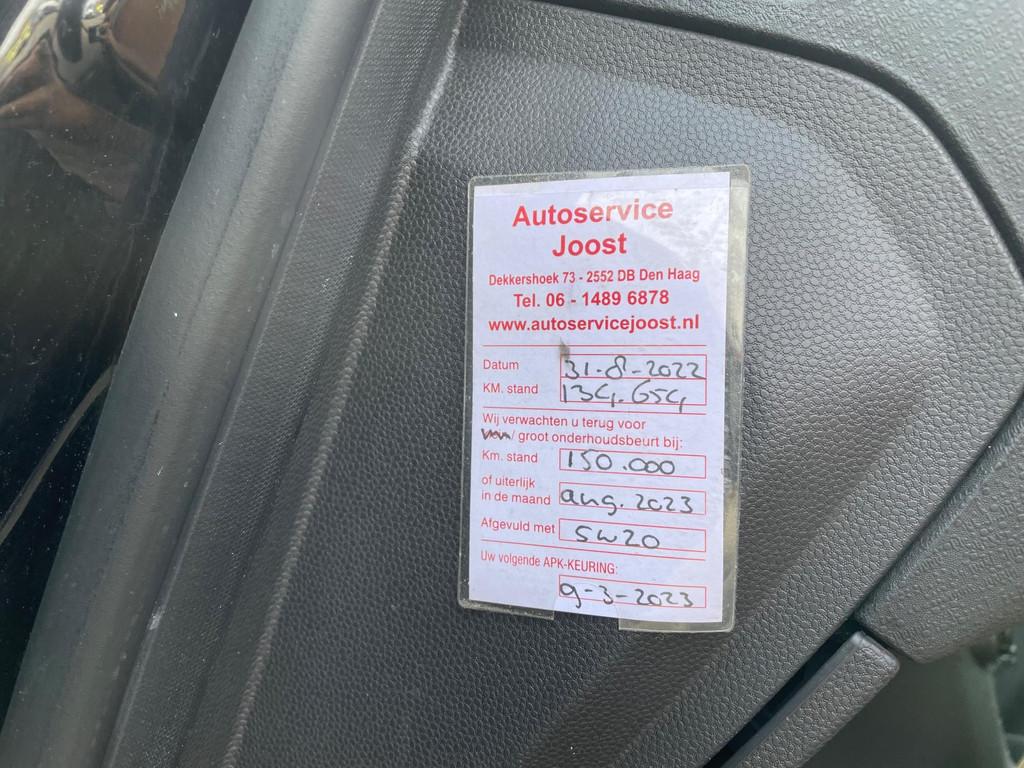 Autoservice
Joost
Dekkershoek 73 - 2552 DB Den Haag
Tel. 06 - 1489 6878
www.autoservicejoost.nl
Datum 31-8-2022
KM. stand 134.654
Wij verwachten u terug voor
/ groot onderhoudsbeurt bij:
Km. stand 150.000
of uiterlijk
in de maand aug. 2023
Afgevuld met 5W20
Uw volgende APK-KEURING:
9-3-2023